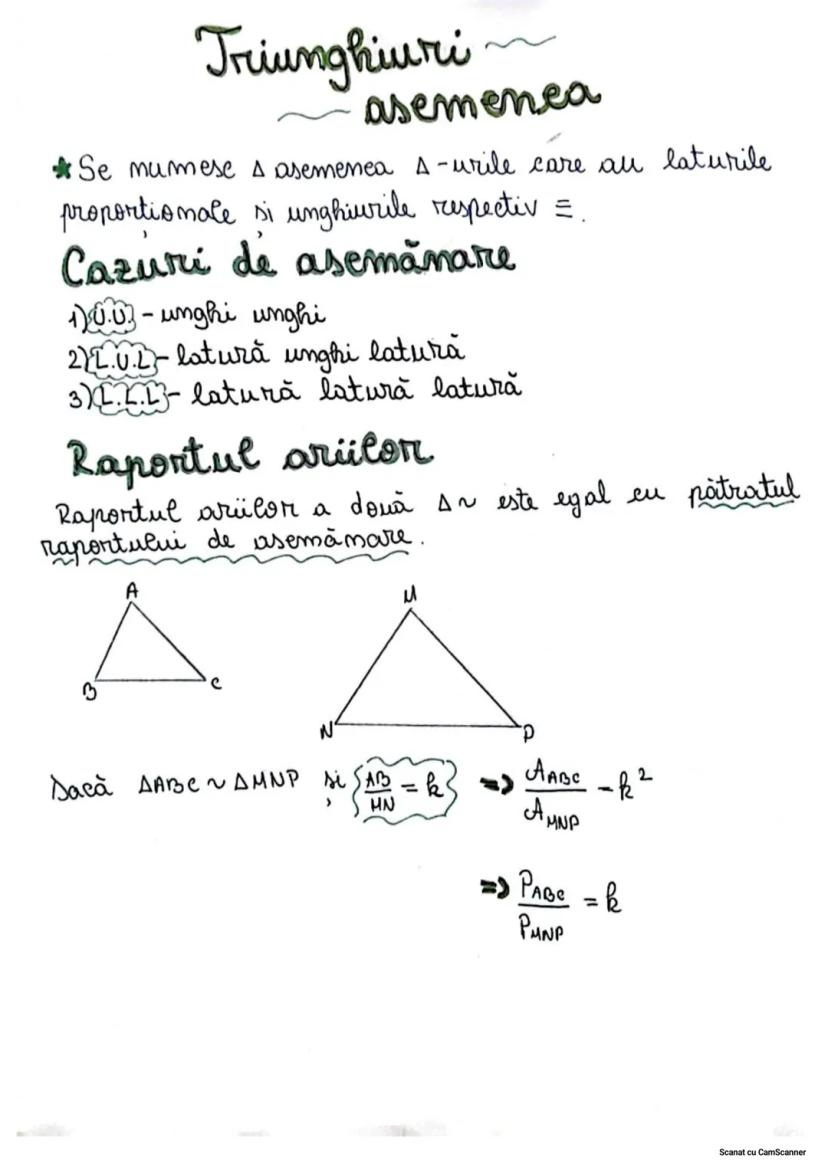 Triunghiuri
asemenea
★ Se numesc Δ asemenea Δ-urile care au laturile
proporționale și unghiurile respectiv ≡.
Cazuri de asemănare
1) U.U. - unghi unghi
2) L.U.L - latură unghi latură
3) L.L.L - latură latură latură
Raportul ariilor
Raportul ariilor a două Δ ~ este egal cu pătratul
raportului de asemănare.
A
M
B
C
N
P
Dacă ΔABC ~ ΔMNP și AB/MN = k => A ABC / A MNP - k²
=> P ABC / P MNP = k
Scanat cu CamScanner